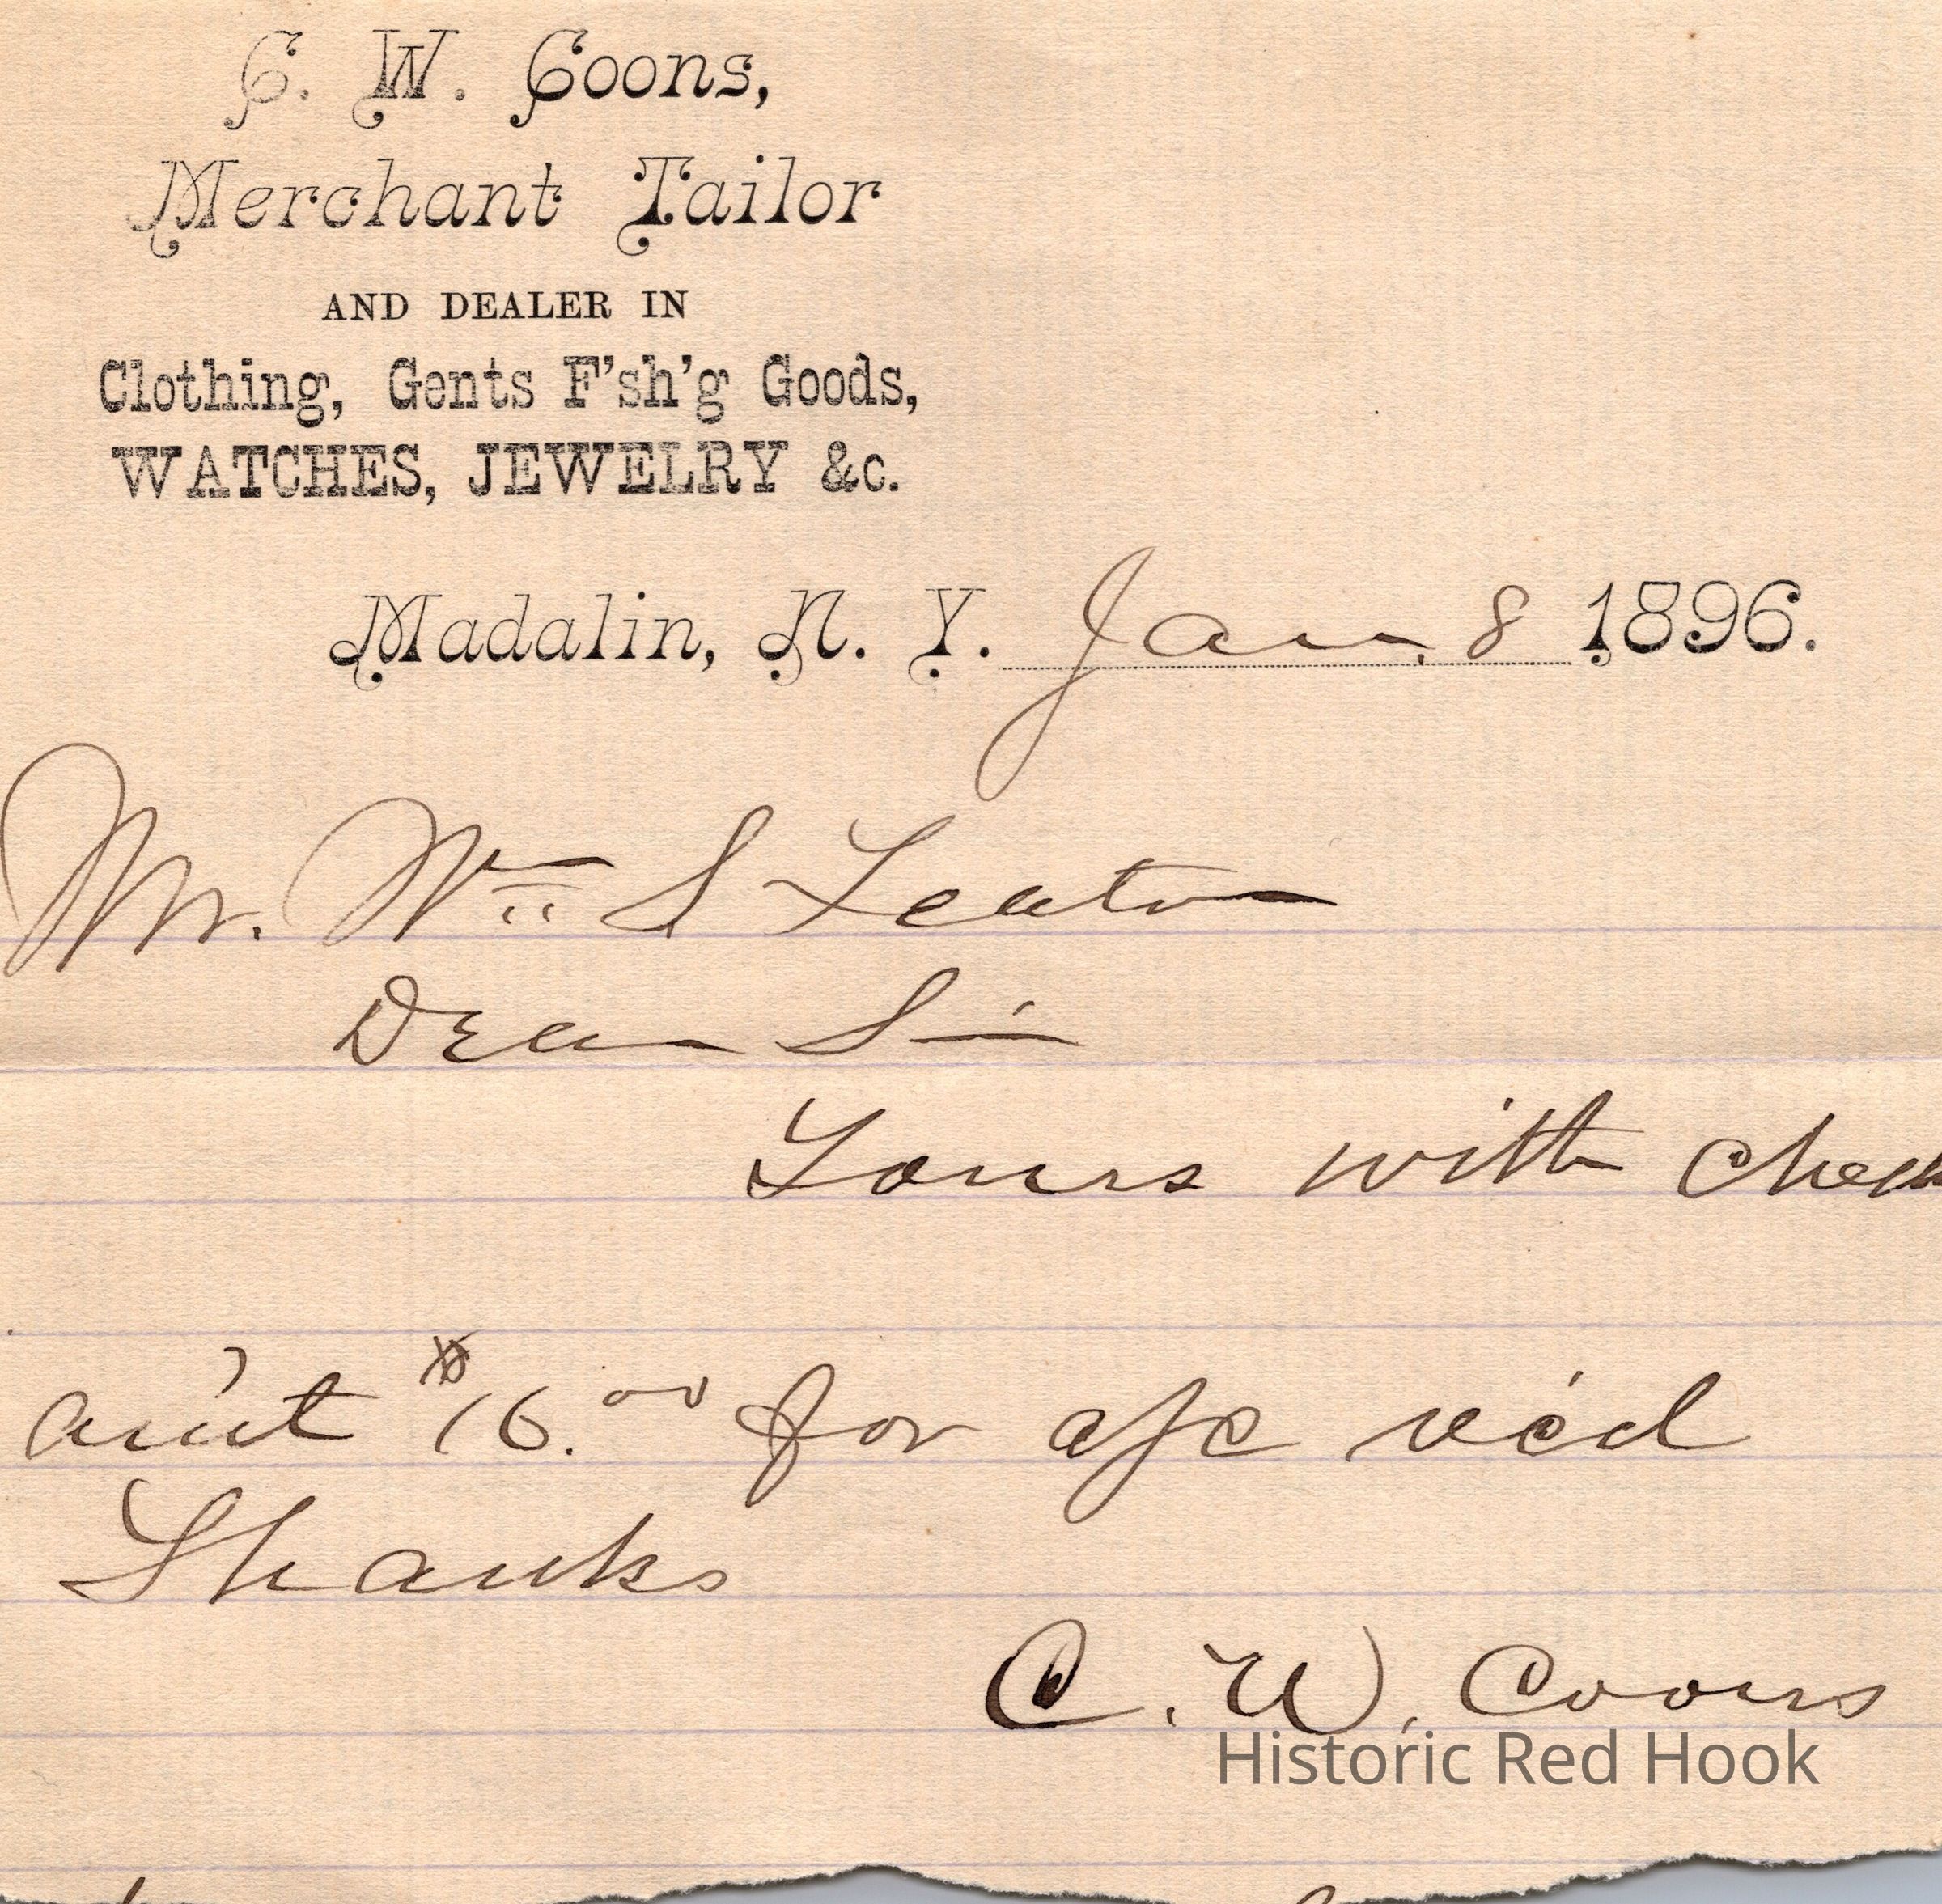 C. W. Coons,
Merchant Tailor
AND DEALER IN
Clothing, Gents F'sh'g Goods,
WATCHES, JEWELRY &c.
Madalin, N. Y. Jan. 8 1896.
Mr. Wm S Teator
Dear Sir
Yours with check
am't $16.00 for a/c rec'd
Thanks
C. W. Coons
Historic Red Hook